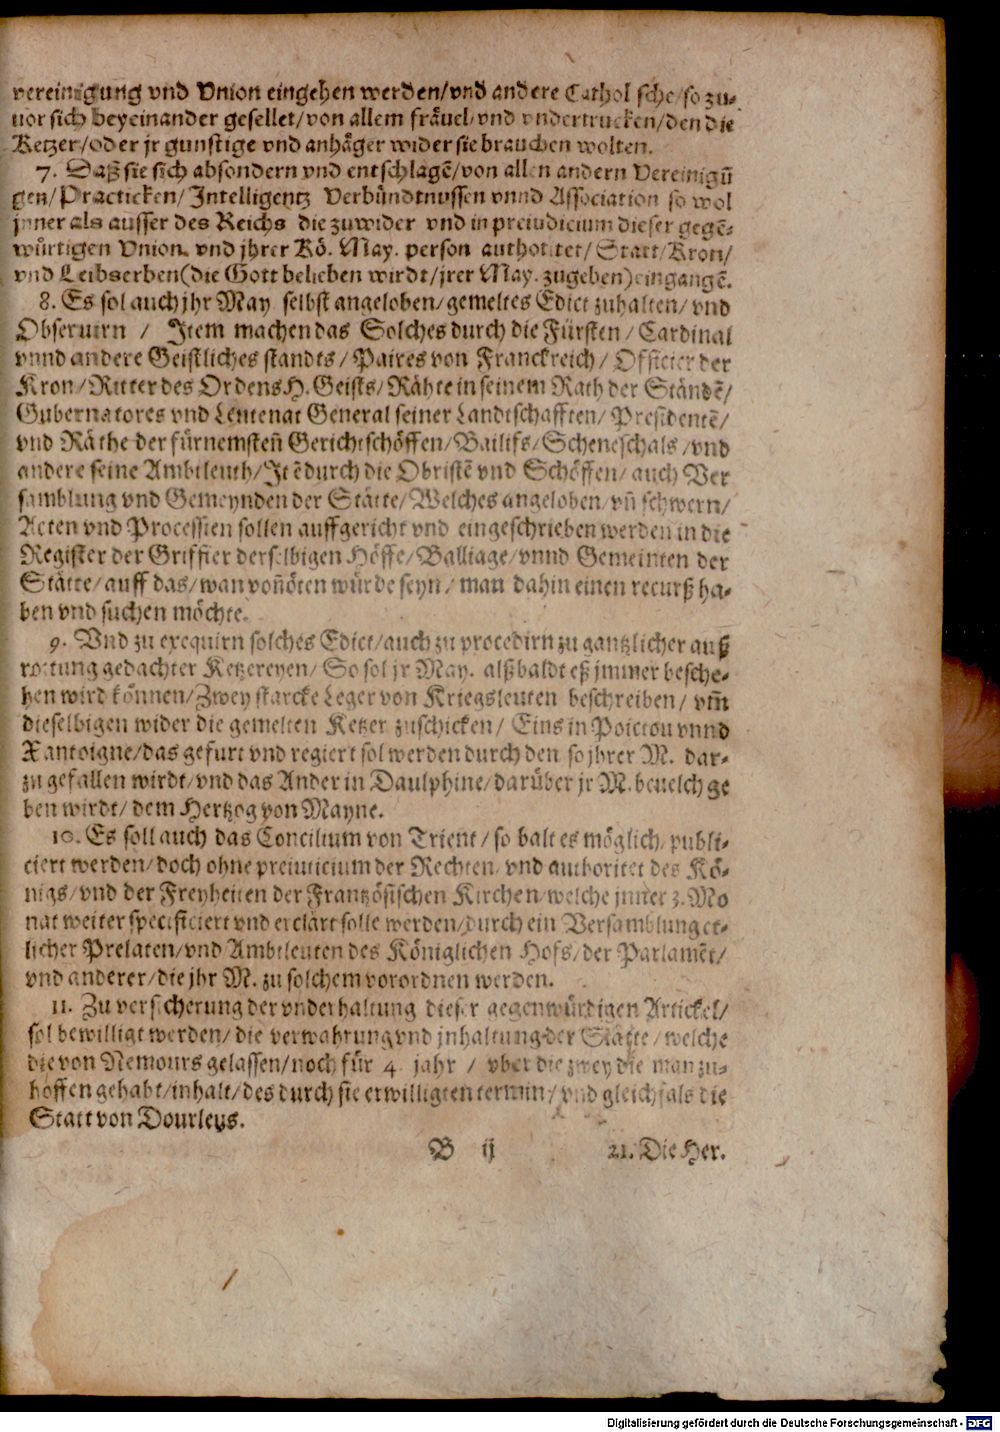 vereinigung vnd Vnion eingehen werden/vnd andere Cathol sche/so zu-
uor sich beyeinander gesellet/von allem fräuel/vnd vndertrucken/den die
Ketzer/oder jr gunstige vnd anhäger wider sie brauchen wolten.
7. Daß sie sich absondern vnd entschlagē/von allen andern Vereinigū
gen/Practicken/Intelligentz Verbündtnussen vnnd Association so wol
jnner als ausser des Reichs die zuwider vnd in preiudicium dieser gegē-
würtigen Vnion. vnd jhrer Kö. May. person authoritet/Statt/Kron/
vnd Leibserben(die Gott belieben wirdt/jrer May. zugeben)eingangē.
8. Es sol auch jhr May selbst angeloben/gemeltes Edict zuhalten/vnd
Obseruirn / Item machen das Solches durch die Fürsten/Cardinal
vnnd andere Geistliches standts/Paires von Franckreich/Officier der
Kron/Ritter des Ordens H. Geists/Rähte in seinem Rath der Ständē/
Gubernatores vnd Leutenat General seiner Landtschafften/Presidentē/
vnd Räthe der fürnemsten̄ Gerichtschöffen/Bailifs/Scheneschals/vnd
andere seine Ambtleuth/Itē durch die Obristē vnd Schöffen/auch Ver
samblung vnd Gemeynden der Stätte/Welches angeloben/vn̄ schwern/
Acten vnd Processien sollen auffgericht vnd eingeschrieben werden in die
Register der Griffier derselbigen Höffe/Balliage/vnnd Gemeinten der
Stätte/auff das/wan von̄öten würde seyn/man dahin einen recurß ha-
ben vnd suchen möchte.
9. Vnd zu exequirn solches Edict/auch zu procedirn zu gantzlicher auß
rottung gedachter Ketzereyen/So sol jr May. alßbaldt eß jmmer besche-
hen wird können/Zwey starcke Leger von Kriegsleuten beschreiben/vn̄
dieselbigen wider die gemelten Ketzer zuschicken/Eins in Poictou vnnd
Xantoigne/das gefurt vnd regiert sol werden durch den so jhrer M. dar-
zu gefallen wirdt/vnd das Ander in Daulphine/darüber jr M. beuelch ge
ben wirdt/dem Hertzog von Mayne.
10. Es soll auch das Concilium von Trient/so balt es möglich/publi-
ciert werden/doch ohne preiuticium der Rechten/vnd authoritet des Kö-
nigs/vnd der Freyheiten der Frantzösischen Kirchen/welche jnner 3. Mo
nat weiter specificiert vnd erclärt solle werden/durch ein Versamblung et-
licher Prelaten/vnd Ambtleuten des Königlichen Hofs/der Parlamēt/
vnd anderer/die jhr M. zu solchem vorordnen werden.
11. Zu versicherung der vnderhaltung dieser gegenwürdigen Artickel/
sol bewilligt werden/die verwahrung vnd jnhaltung der Stätte/welche
die von Nemours gelassen/noch für 4 jahr / vber die zwey die man zu-
hoffen gehabt/inhalt/des durch sie erwilligten termin/vnd gleichfals die
Statt von Dourleus.
B ij 21. Die Her.
Digitalisierung gefördert durch die Deutsche Forschungsgemeinschaft - DFG